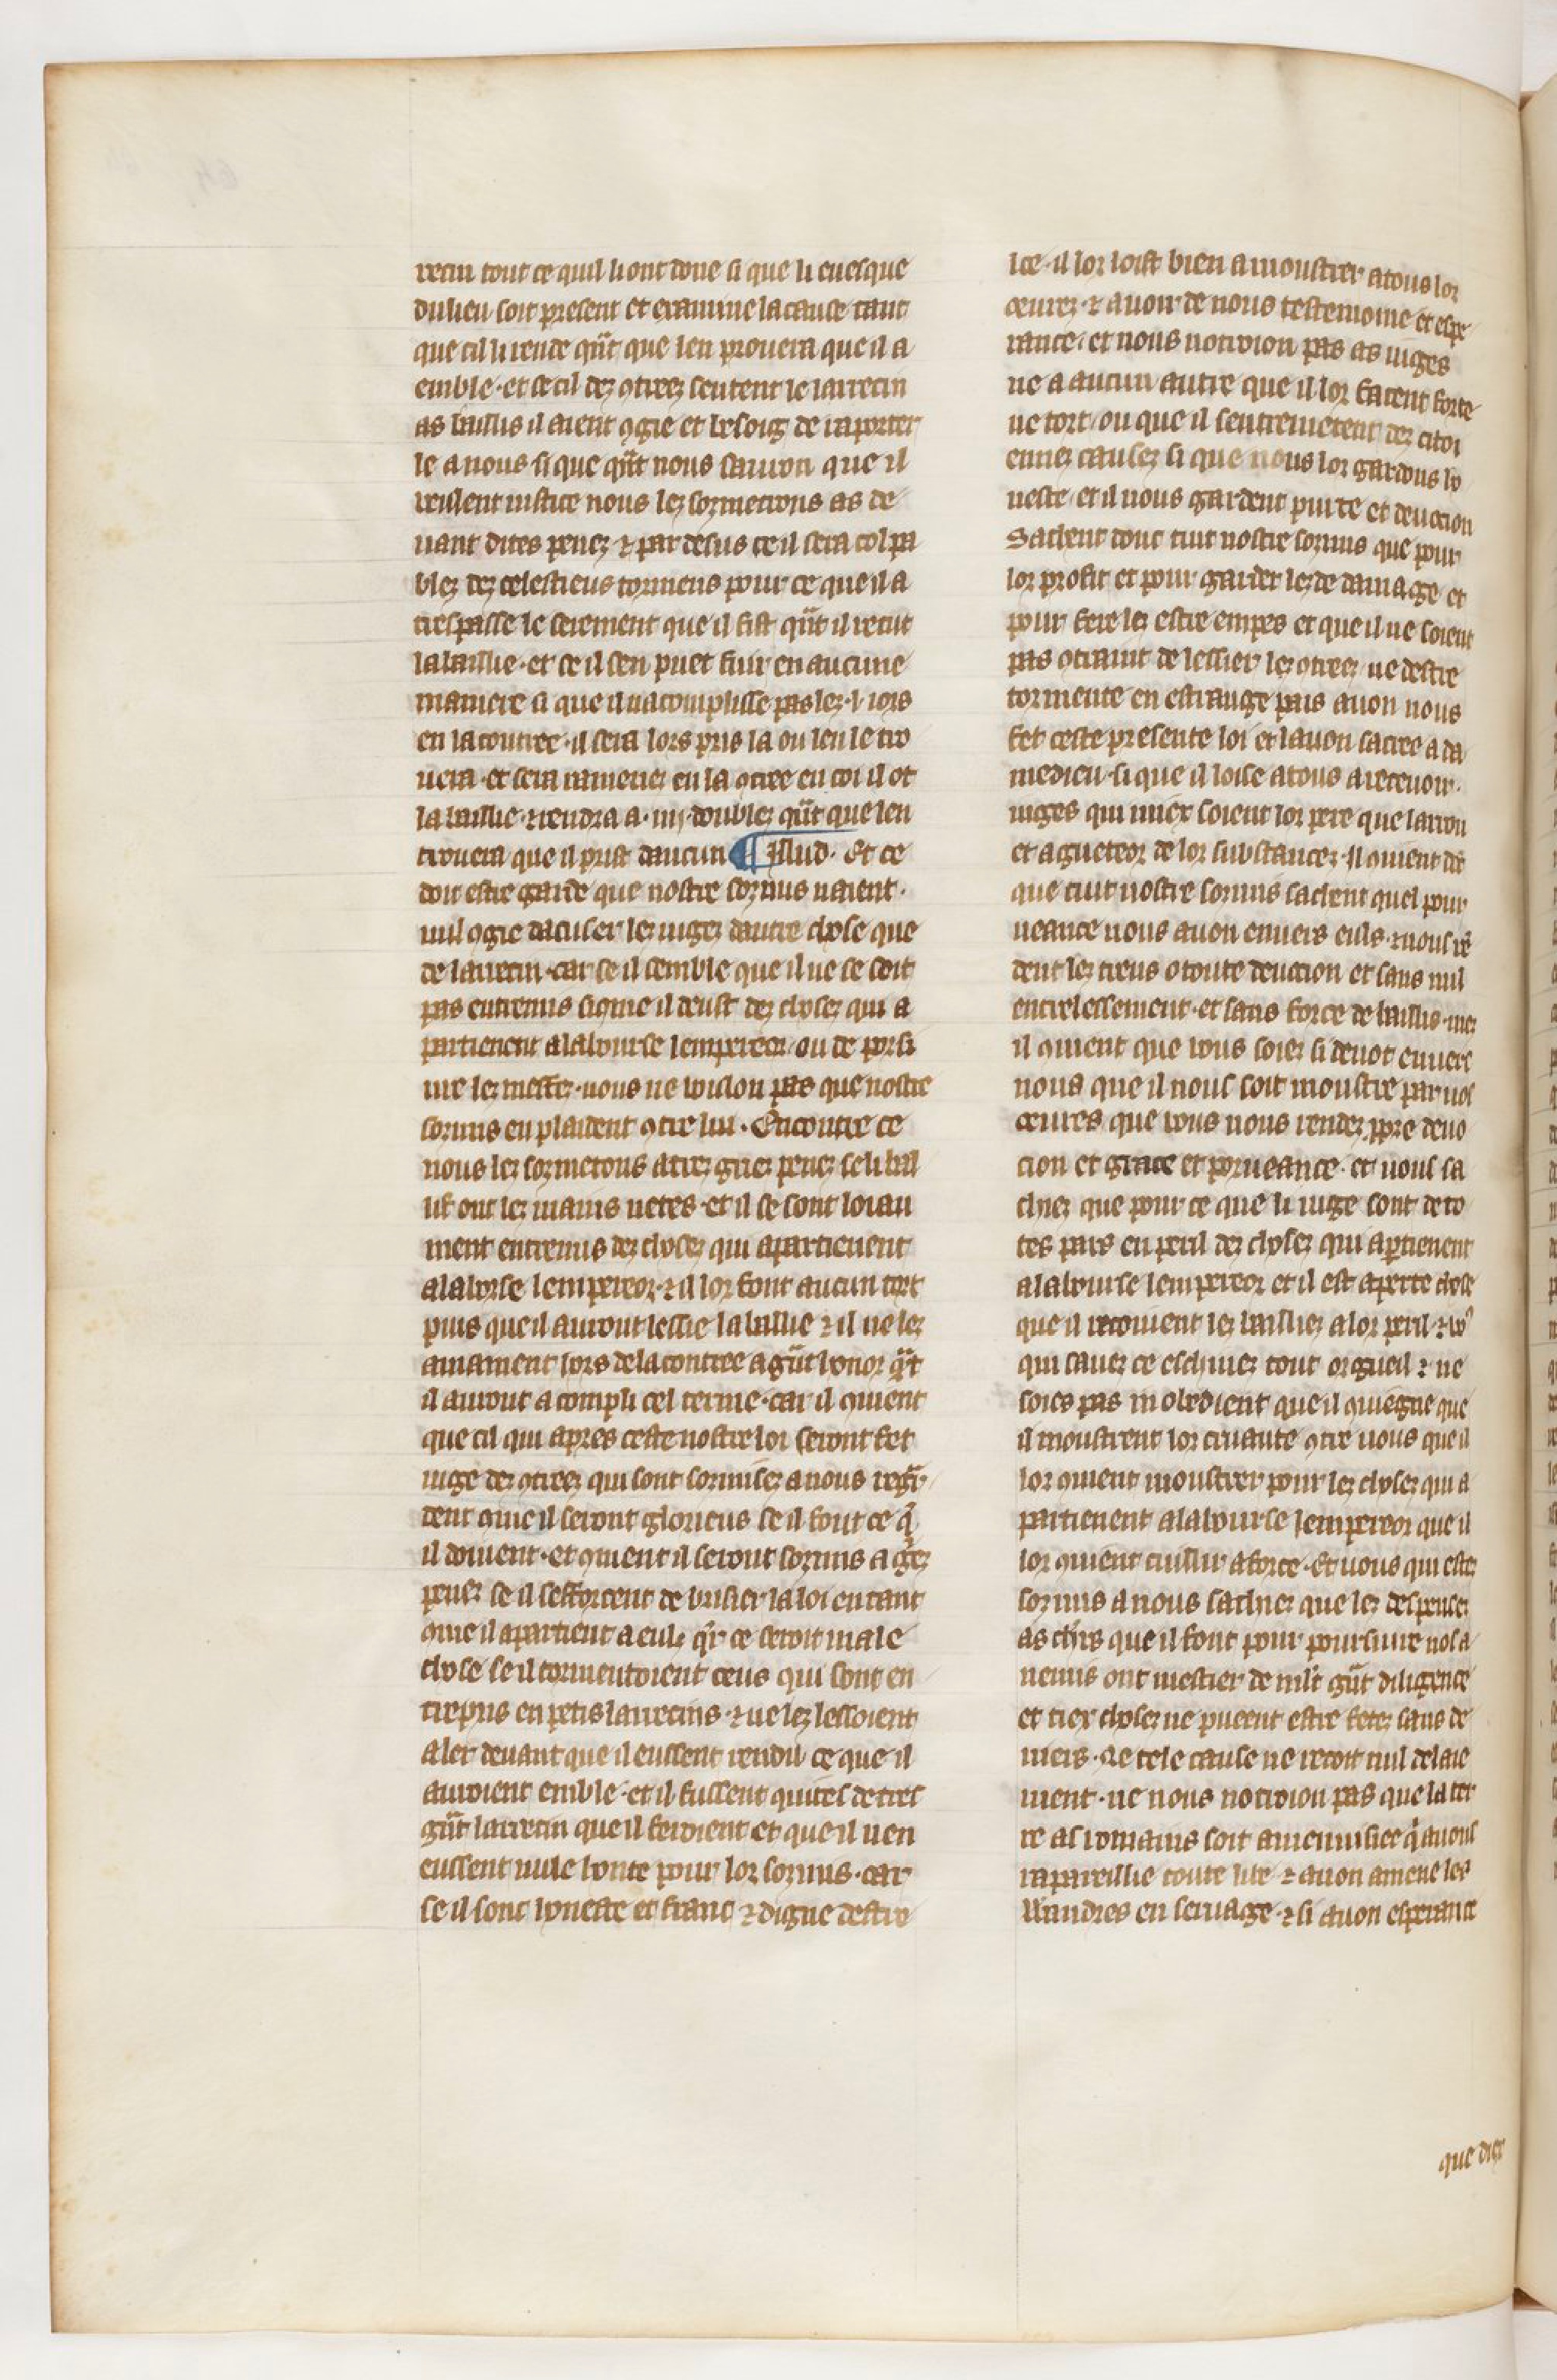 recin tout ce quil li ont done si que li euesque
du lieu soit present et examine la cause tant
que cil li rende qͣt que len prouera que il a
emble · et se cil dez ꝯtreez sentent le larrecin
as baillis il aient ꝯgie et besoig de raporter
le a nous si que qͣt nous sauron que il
veulent iustice nous lez sozmetrons as de
uant dites penez ⁊ par desus ce il sera colpa
blez dez celestieus tormens pour ce que il a
trespasse le serement que il fist qͣt il recut
la baillie · et se il sen puet fuir en aucune
maniere si que il nacomplisse pas lez · l · iors
en la contree · il sera lors pris la ou len le tro
uera · et sera ramenez en la ꝯtree en coi il ot
la baillie · ⁊ rendra a · iiij · doublez qͣt que len
trouera que il prist daucun ¶ Illud · Et ce
doit estre garde que nostre sozmis naient ·
nul ꝯgie dacuser lez iugez dautre chose que
de larrecin · car se il semble que il ne se soit
pas entremis siꝯme il deust dez chosez qui a
partienent a la bourse lempereor · ou de porsi
ure lez meffez · nous ne volon pas que nostre
sozmis en plaident ꝯtre lui · Encontre ce
nous lez sozmetons a trez griez penez se li bail
lif ont lez mains netes · et il se sont loiau
ment entremis dez chosez qui apartienent
a la borse lempereor · ⁊ il lor font aucun tort
puis que il auront lessie la baillie ⁊ il ne lez
amainent hors de la contree a gͣt honor qͣt
il auront acompli cel terme · car il ꝯuient
que cil qui apres ceste nostre loi seront fet
iuge dez ꝯtreez qui sont sozmisez a nous regͣr
dent ꝯme il seront glorieus se il font ce q̄
il doiuent · et ꝯment il seront sozmis a gͥez
penez se il sefforcent de brisier la loi en tant
ꝯme il apartient a euls qͣr ce seroit male
chose se il tormentoient ceus qui sont en
trepris en petis larrecins · ⁊ ne lez lessoient
aler deuant que il eussent rendu ce que il
auroient emble · et il fussent quites de tres
gͣt larrecin que il feroient et que il nen
eussent nule honte pour lor sozmis · car
se il sont honeste et franc ⁊ digne destre
ice · il lor loist bien a moustrer a tous lor
oeurez ⁊ auoir de nous testemoine et espe
rance · et nous notroion pas as iuges
ne a aucun autre que il lor facent force
ne tort · ou que il sentremetent dez citoi
ennez causez si que nous lor gardons ho
neste · et il nous gardent purte et deuocion
Sachent donc tuit nostre sozmis que pour
lor profit et pour garder lez de damage et
pour fere lez estre enpes et que il ne soient
pas ꝯtraint de lessier lez ꝯtreez ne destre
tormente en estrange pais auon nous
fet ceste presente loi et lauon sacree a da
medieu · si que il loise a tous a receuoir ·
iuges qui miex soient lor pere que larron
et agueteor de lor substancez · il ꝯuient dōt
que tuit nostre sozmis sachent quel pour
ueance nous auon enuers euls · ⁊ nous rē
dent lez treus o toute deuocion et sans nul
entrelessement · et sans force de baillis · mez
il ꝯuient que vous soiez si deuot enuers
nous que il nous soit moustre par vos
oeures que vous nous rendez ꝓpre deuo
cion et grace et porueance · et vous sa
chiez que pour ce que li iuge sont de to
tes pars en peril dez chosez qui apartienent
a la bourse lempereor et il est aperte chose
que il recoiuent lez bailliez a lor peril · ⁊ voꝰ
qui sauez ce eschiuez tout orgueil ⁊ ne
soies pas inobedient que il ꝯuiegne que
il moustrent lor cruaute ꝯtre vous que il
lor ꝯuient moustrer pour lez chosez qui a
partienent a la bourse lempereor que il
lor ꝯuient cuillir a force · Et vous qui estez
sozmis a nous sachiez que lez despensez
as ch'rs que il font pour poursuiure nos a
nemis ont mestier de ml't gͣt diligence
et tiex chosez ne pueent estre fetez sans de
niers · Ne tele cause ne recoit nul delaie
ment · ne nous notroion pas que la ter
re as romains soit amenuisiee q̄ auons
rapareillie toute libe ⁊ auon amene les
Wandres en seruage · ⁊ si auon esperance
que diex